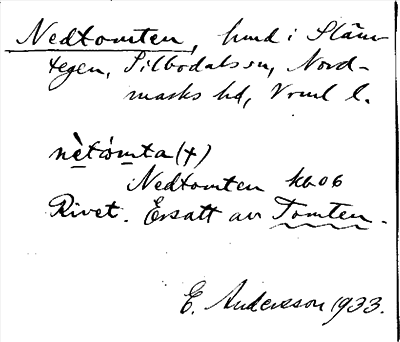 Nedtomten, hmd i Släm-
tegen, Silbodals sn, Nord-
marks hd, Vrml l.
nètómta (+)
Nedtomten kb 06
Rivet. Ersatt av Tomten.
E. Andersson 1933.